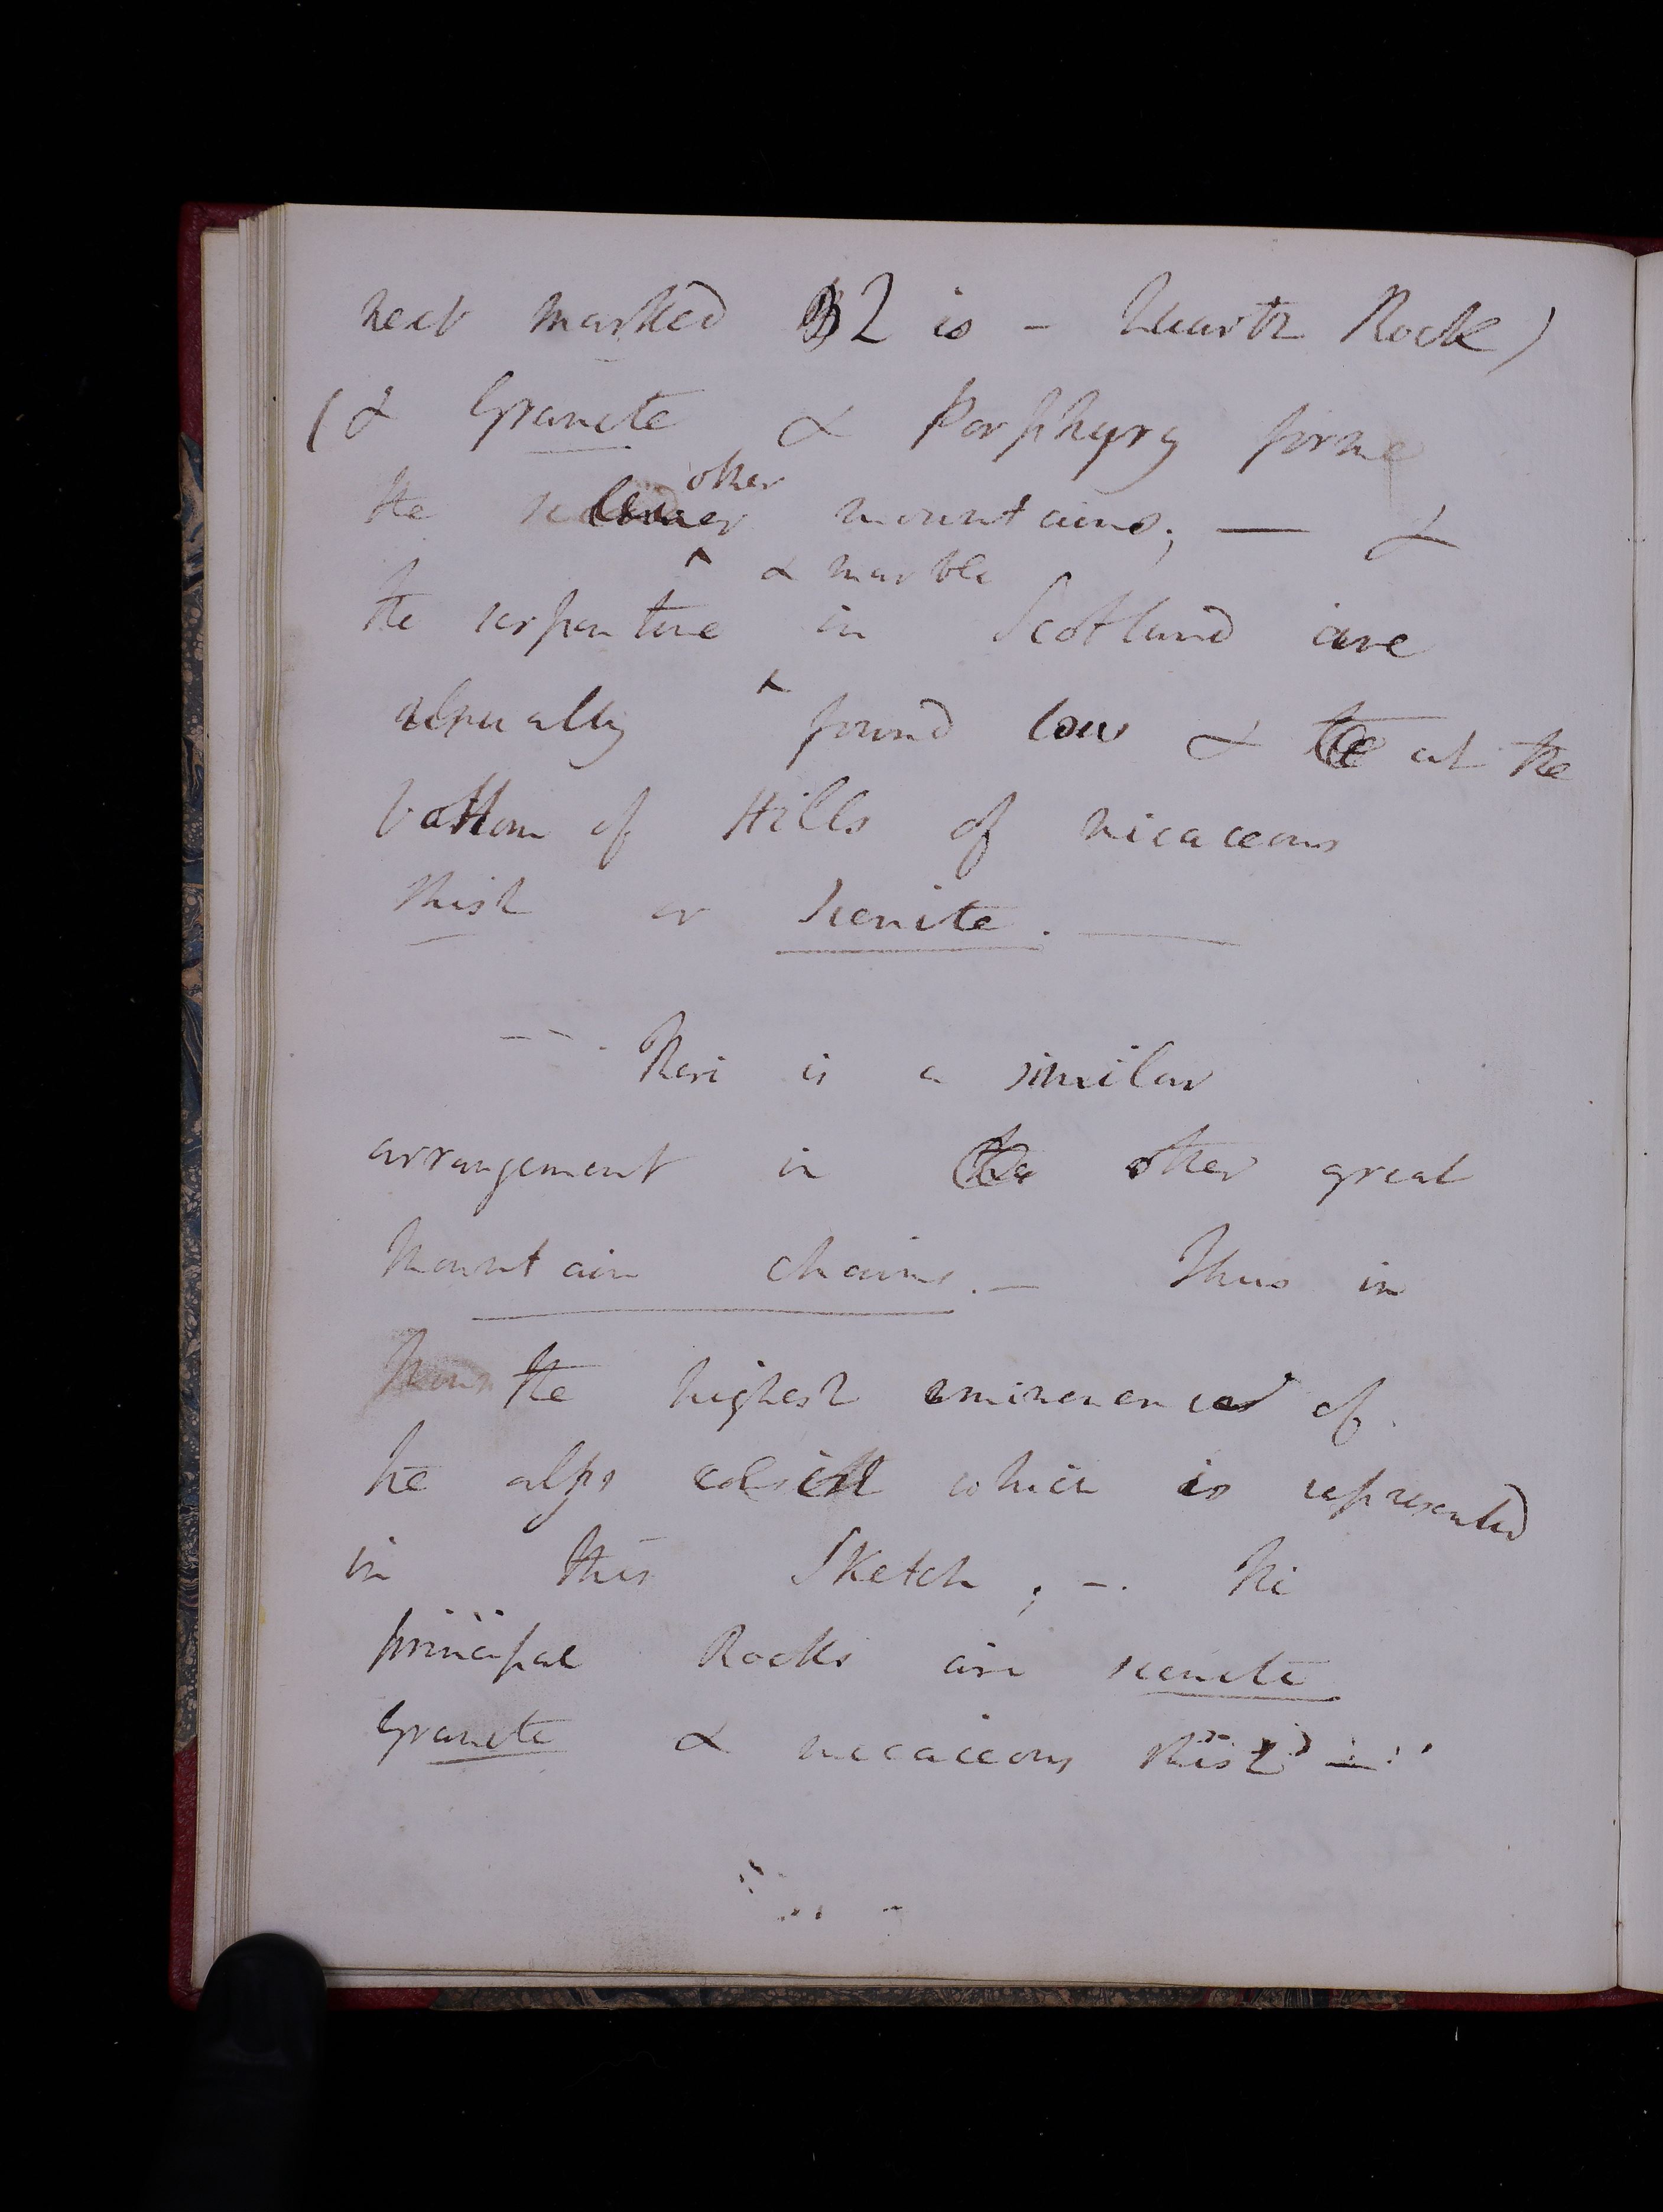 next marked 2 is - Quartz Rock)
(& Granite & Porphyry form
other
the lower mountains; — &
& marble
the serpentine in Scotland are
usually found low & at the
bottom of Hills of micaceous
shist or sienite. —
There is a similar
arrangement in the other great
mountain chains. — Thus in
the highest eminences of
the alps which is represented
in this Sketch; -. the
principal Rocks are sienite
Granite & micaceous shist -